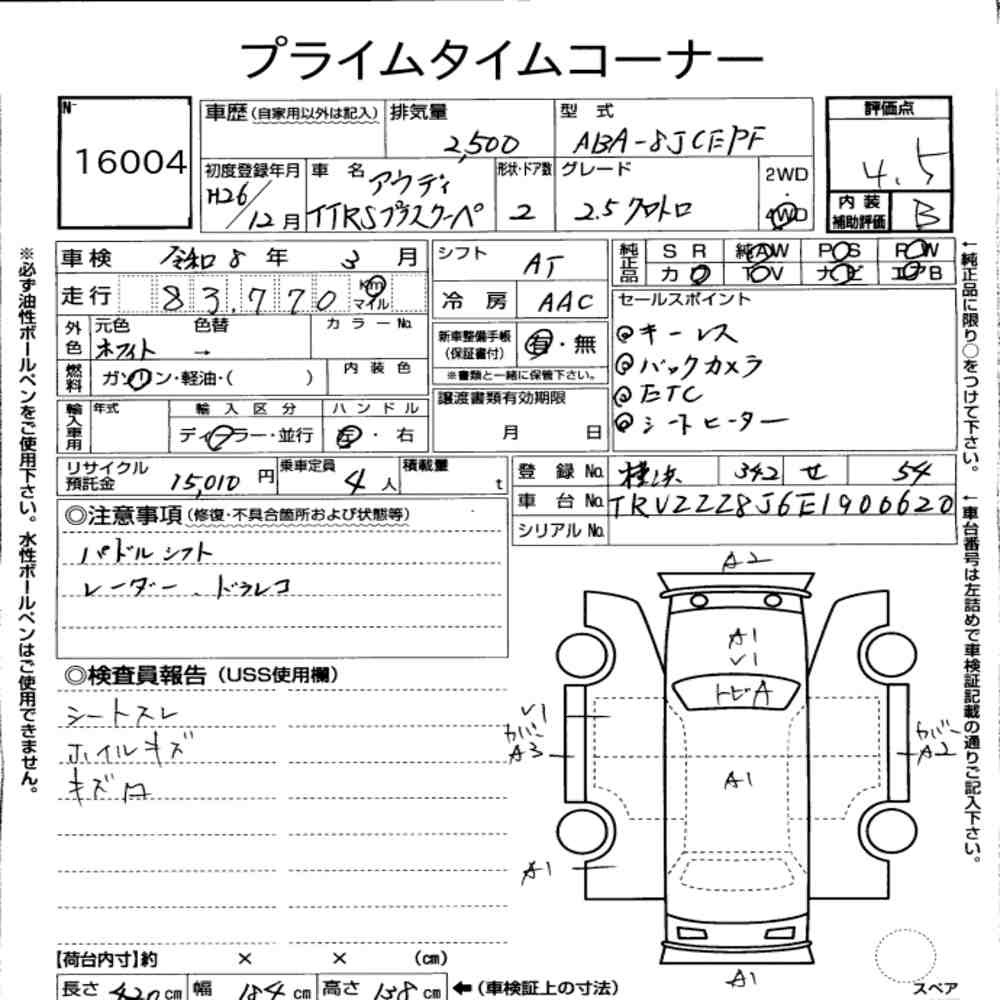 プライムタイムコーナー
N-
16004
車歴(自家用以外は記入)
排気量
2,500
型式
ABA-8JCEPF
評価点
4.5
初度登録年月
H26/12月
車名
アウディ
TTRSプラスクーペ
形状・ドア数
2
グレード
2.5クワトロ
2WD
・
4WD
内装
補助評価
B
車検 令和 8 年 3 月
シフト
AT
純正品
SR 純AW PS PW
カワ TV ナビ エアB
走行 83,770 km マイル
冷房 AAC
セールスポイント
キーレス
バックカメラ
ETC
シートヒーター
外色
元色
色替
カラーNo.
ホワイト →
新車整備手帳
(保証書付)
有・無
※書類と一緒に保管下さい。
燃料
ガソリン・軽油・( )
内装色
輸入車用
年式
輸入区分
ハンドル
ディーラー・並行
左・右
譲渡書類有効期限
月 日
リサイクル
預託金
15,010 円
乗車定員
4人
積載量
t
登録No. 横浜 342 せ 54
車台No. TRVZZZ8J6E1900620
シリアルNo.
◎注意事項(修復・不具合箇所および状態等)
パドルシフト
レーダー、ドラレコ
◎検査員報告(USS使用欄)
シートスレ
ホイルキズ
キズ口
A2
A1
V1
トビA
V1
カバー
A3
カバー
A2
A1
A1
A1
スペア
【荷台内寸】約 × × (cm)
長さ 420 cm 幅 184 cm 高さ 138 cm ←(車検証上の寸法)
※必ず油性ボールペンをご使用下さい。水性ボールペンはご使用できません。
←純正品に限り○をつけて下さい。
←車台番号は左詰めで車検証記載の通りご記入下さい。